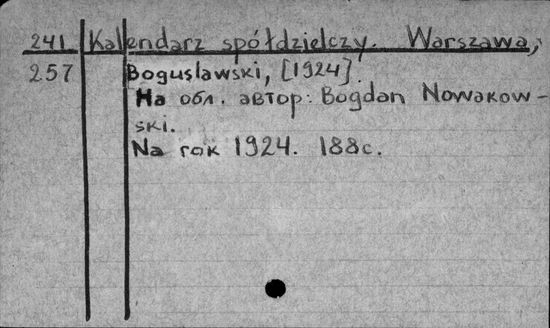 241 Kalendarz spółdzielczy. Warszawa,
257 Boguslawski, [1924].
На обл. автор: Bogdan Nowakow-
ski.
Na rok 1924. 188с.